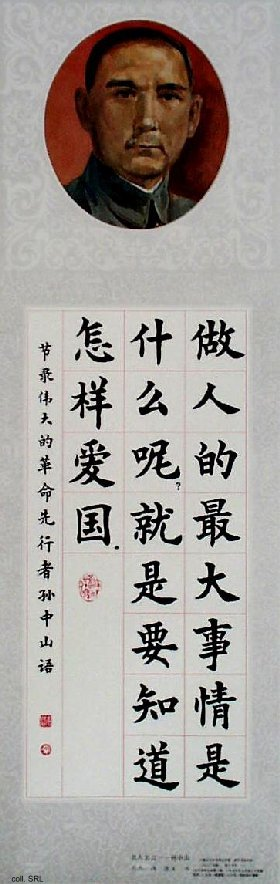 做人的最大事情是
什么呢?就是要知道
怎样爱国.
节录伟大的革命先行者孙中山语
coll. SRL